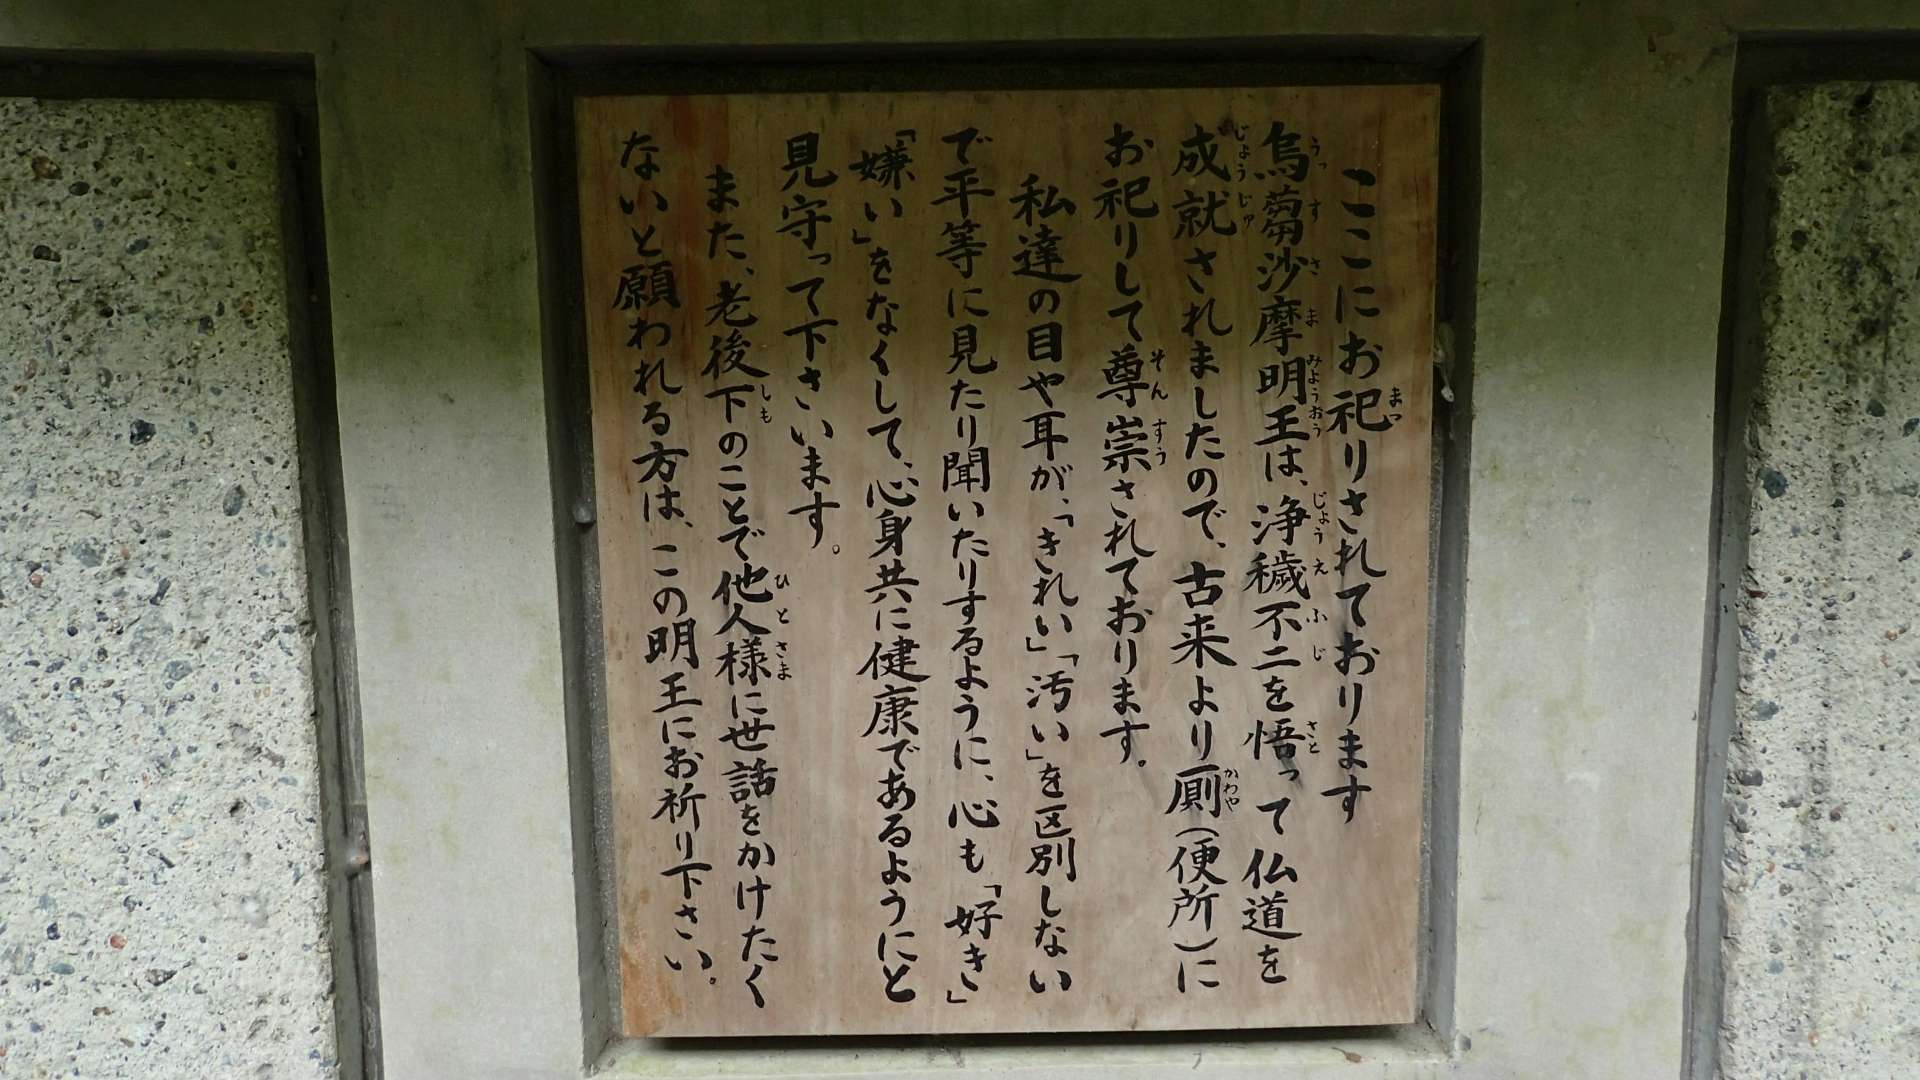 ここにお祀りされております
烏蒭沙摩明王は、浄穢不二を悟って仏道を
成就されましたので、古来より厠(便所)に
お祀りして尊崇されております。
私達の目や耳が、「きれい」「汚い」を区別しない
で平等に見たり聞いたりするように、心も「好き」
「嫌い」をなくして、心身共に健康であるようにと
見守って下さいます。
また、老後下のことで他人様に世話をかけたく
ないと願われる方は、この明王にお祈り下さい。